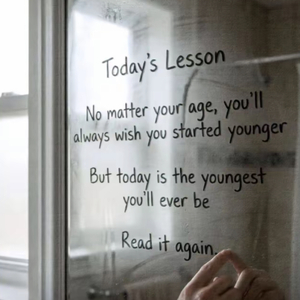 Today's Lesson
No matter your age, you'll
always wish you started younger
But today is the youngest
you'll ever be
Read it again.